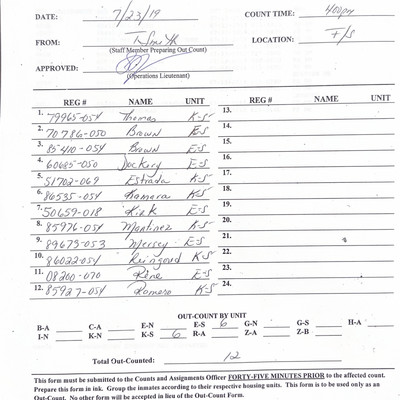 DATE: 7/23/19 COUNT TIME: 400pm
FROM: T. Smith LOCATION: F/S
(Staff Member Preparing Out Count)
APPROVED:
(Operations Lieutenant)
REG # NAME UNIT REG # NAME UNIT
1. 79965-054 Thomas K-S 13.
2. 70786-050 Brown E-S 14.
3. 85410-054 Brown E-S 15.
4. 60685-050 Dockery E-S 16.
5. 51702-069 Estrada K-S 17.
6. 86535-054 Kamara K-S 18.
7. 50659-018 Kirk E-S 19.
8. 85976-054 Martinez K-S 20.
9. 89673-053 Mersey E-S 21.
10. 86022-054 Reingoud K-S 22.
11. 08200-070 Rene E-S 23.
12. 85927-054 Romero K-S 24.
OUT-COUNT BY UNIT
B-A C-A E-N E-S 6 G-N G-S H-A
I-N K-N K-S 6 R-A Z-A Z-B
Total Out-Counted: 12
This form must be submitted to the Counts and Assignments Officer FORTY-FIVE MINUTES PRIOR to the affected count.
Prepare this form in ink. Group the inmates according to their respective housing units. This form is to be used only as an
Out-Count. No other form will be accepted in lieu of the Out-Count Form.